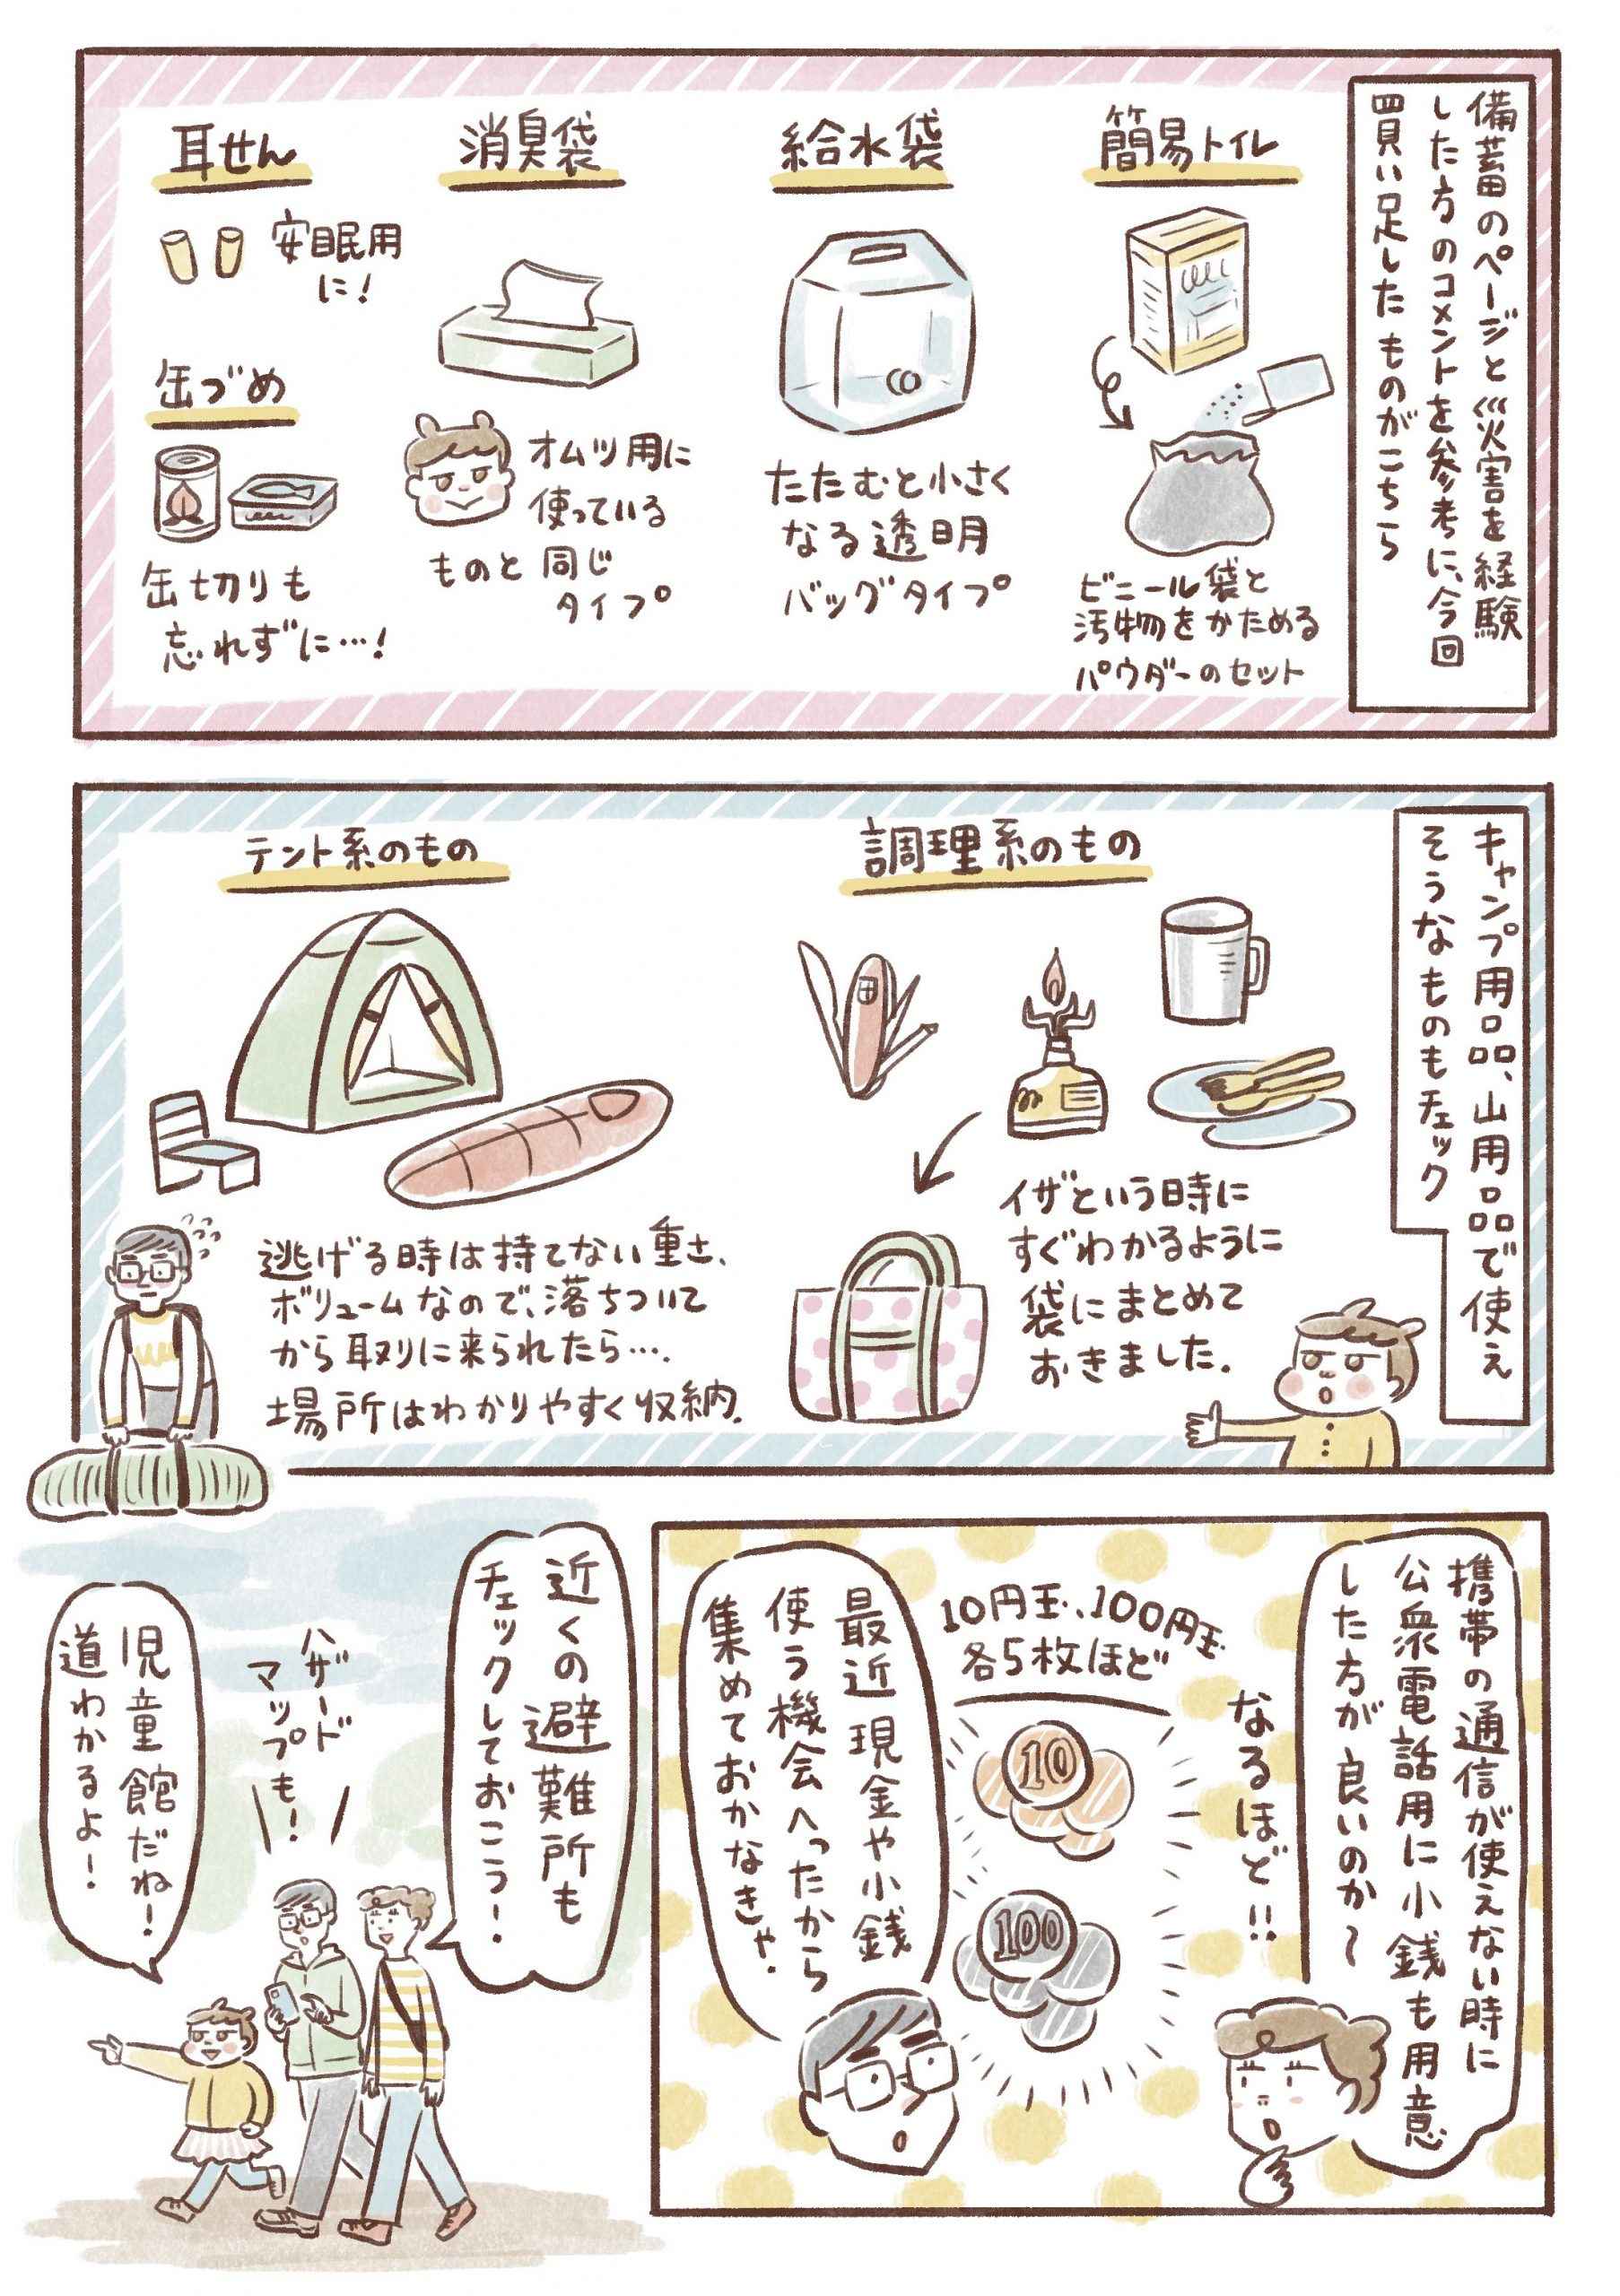 備蓄のページと災害を経験
した方のコメントを参考に、今回
買い足したものがこちら
簡易トイレ
ビニール袋と
汚物をかためる
パウダーのセット
給水袋
たたむと小さく
なる透明
バッグタイプ
消臭袋
オムツ用に
使っている
ものと同じ
タイプ
耳せん
安眠用
に!
缶づめ
缶切りも
忘れずに…!
キャンプ用品、山用品で使え
そうなものもチェック
調理系のもの
イザという時に
すぐわかるように
袋にまとめて
おきました.
テント系のもの
逃げる時は持てない重さ、
ボリュームなので、落ちついて
から取りに来られたら….
場所はわかりやすく収納.
携帯の通信が使えない時に
公衆電話用に小銭も用意
した方が良いのか〜
なるほど!!
10円玉、100円玉
各5枚ほど
10
100
最近現金や小銭
使う機会へったから
集めておかなきゃ.
近くの避難所も
チェックしておこう!
ハザード
マップも!
児童館だね!
道わかるよ!